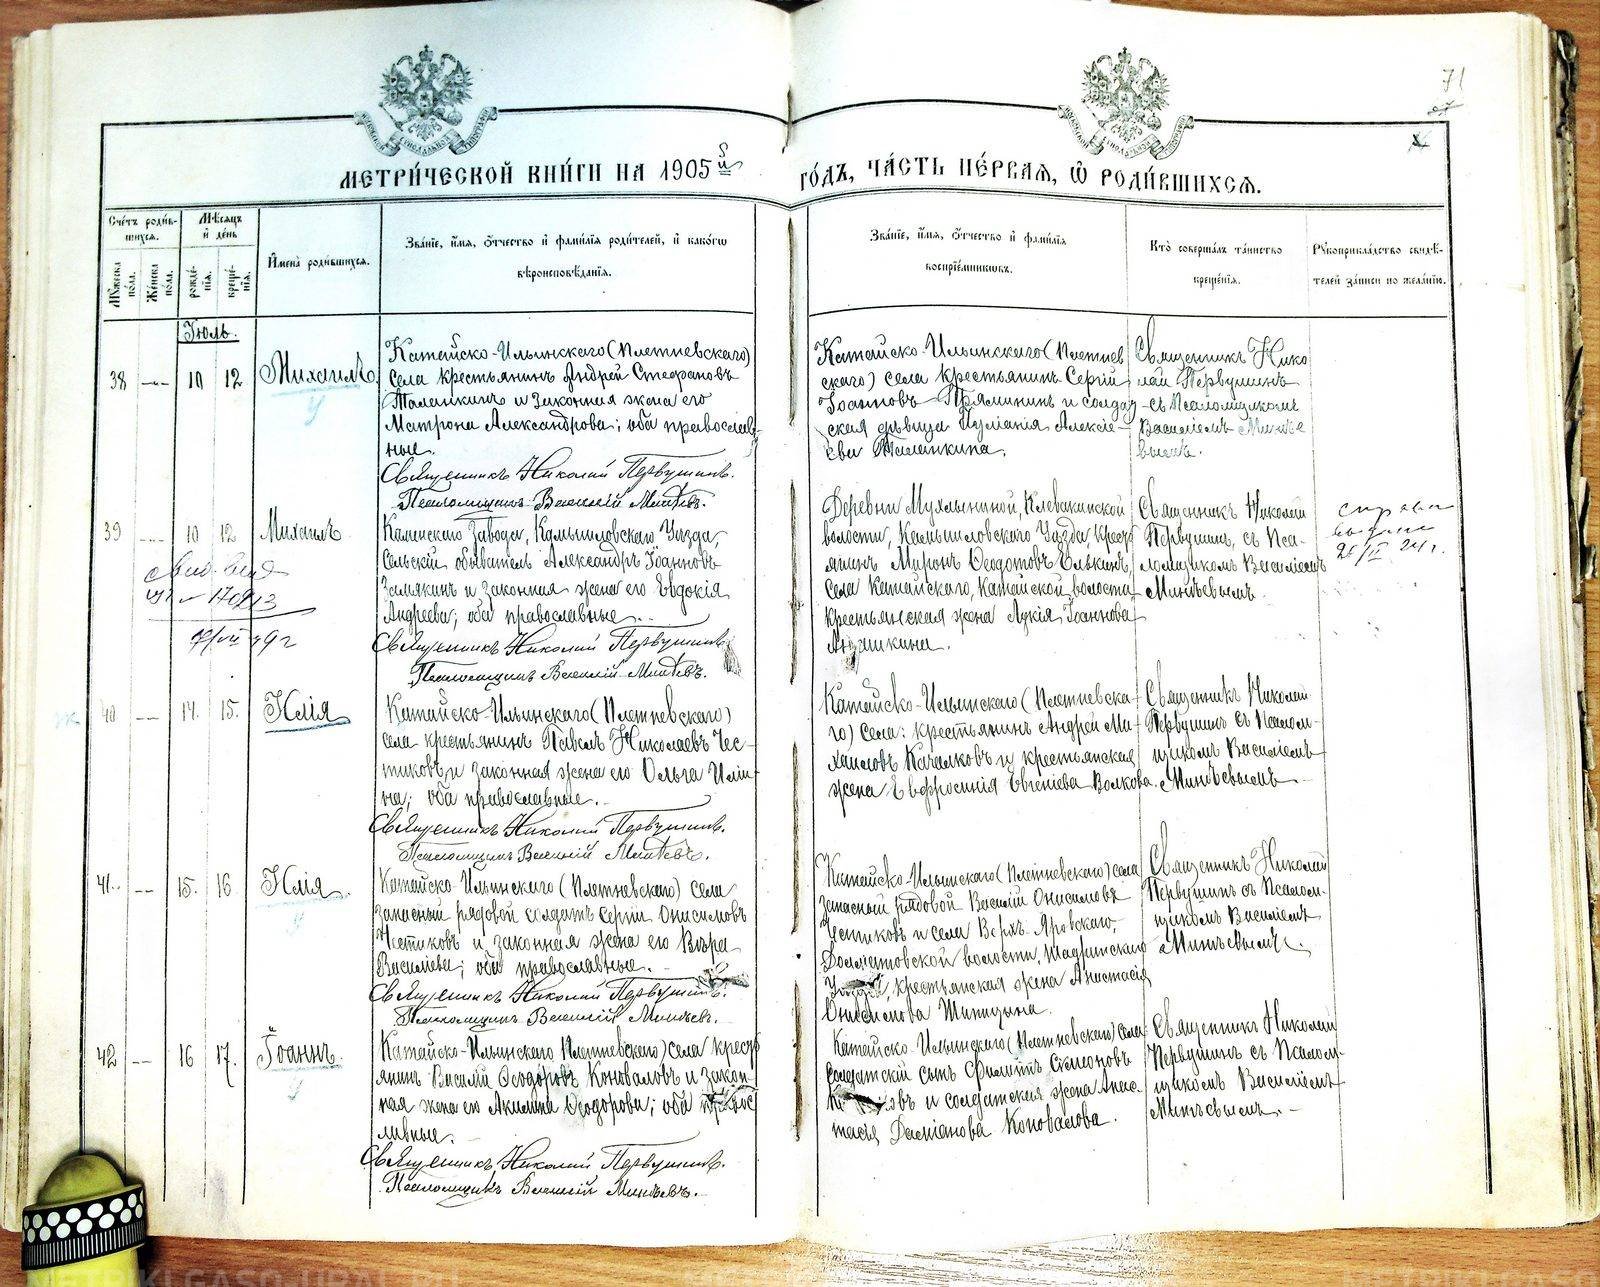 71
МЕТРИ́ЧЕСКОЙ КНИ́ГИ НА 1905й
ГО́ДЪ, ЧА́СТЬ ПЕ́РВАѦ, Ѡ҆ РОДИ́ВШИХСѦ.
Сче́тъ роди́в-
шихсѧ.
Мѣ́сѧцъ
и҆ де́нь
Мꙋ́жеска
по́ла.
Же́нска
по́ла.
рожде́-
нїѧ.
креще́-
нїѧ.
И҆мена̀ роди́вшихсѧ.
Зва́нїе, и҆́мѧ, ѻ҆́тчество и҆ фами́лїѧ роди́телей, и҆ како́гѡ
вѣроисповѣ́данїѧ.
Зва́нїе, и҆́мѧ, ѻ҆́тчество и҆ фами́лїѧ
воспрїе́мникѡвъ.
Кто̀ соверша́лъ та́инство
креще́нїѧ.
Рꙋкоприкла́дство свидѣ́-
телей за́писи по жела́нїю.
Іюль.
38 — 10 12 Михаилъ
Катайско-Ильинскаго (Плетневскаго)
села крестьянинъ Андрей Стефановъ
Таланкинъ и законная жена его
Матрона Александрова; оба православ-
ные.
Священникъ Николай Первушинъ.
Псаломщикъ Василій Минѣевъ.
Катайско-Ильинскаго (Плетнев
скаго) села крестьянинъ Сергій
Іоанновъ Пряминъ и солдат-
ская дѣвица Іуліанія Алексіе-
ва Таланкина.
Священникъ Нико
лай Первушинъ
съ Псаломщикомъ
Василіемъ Минѣе
вымъ.
39 — 10 12 Михаилъ
Каминскаго Завода, Камышловскаго Уѣзда,
сельскій обыватель Александръ Іоанновъ
Замякинъ и законная жена его Евдокія
Андреева; оба православные.
Священникъ Николай Первушинъ
Псаломщикъ Василій Минѣевъ.
Деревни Мухлыниной, Клевакинской
волости, Камышловскаго Уѣзда, крест
янинъ Миронъ Ѳеодотовъ Елькинъ,
села Катайскаго, Катайской волости
крестьянская жена Лукія Іоаннова
Священникъ Николай
Первушинъ, съ Пса-
ломщикомъ Василіемъ
Минѣевымъ.
справка
выдана
40 — 14. 15. Илія
Катайско-Ильинскаго (Плетневскаго)
села крестьянинъ Павелъ Николаевъ Чес-
тиковъ и законная жена его Ольга Иліи-
на; оба православные.
Священникъ Николай Первушинъ.
Псаломщикъ Василій Минѣевъ.
Катайско-Ильинскаго (Плетневска-
го) села: крестьянинъ Андрей Ми-
хаиловъ Качалковъ и крестьянская
жена Евфросинія Евгеніева Волкова.
Священникъ Николай
Первушинъ съ Псалом-
щикомъ Василіемъ
Минѣевымъ
41. — 15. 16 Илія.
Катайско-Ильинскаго (Плетневскаго) села
запасный рядовой солдатъ Сергій Онисимовъ
Честиковъ и законная жена его Вѣра
Василіева; оба православные.
Священникъ Николай Первушинъ.
Псаломщикъ Василій Минѣевъ.
Катайско-Ильинскаго (Плетневскаго) села
запасный рядовой Василій Онисимовъ
Честиковъ и села Верхъ-Яровскаго,
Долматовской волости, Шадринскаго
Уѣзда, крестьянская жена Анастасія
Онисимова Шипицына.
Священникъ Николай
Первушинъ съ Псалом-
щикомъ Василіемъ
Минѣевымъ.
42 — 16 17. Іоаннъ.
Катайско-Ильинскаго (Плетневскаго) села крест
янинъ Василій Ѳеодоровъ Коноваловъ и закон-
ная жена его Акилина Ѳеодорова; оба правос
лавные.
Священникъ Николай Первушинъ.
Псаломщикъ Василій Минѣевъ.
Катайско-Ильинскаго (Плетневскаго) села
солдатскій сынъ Филиппъ Симоновъ
и солдатская жена Анас-
тасія Даміанова Коновалова.
Священникъ Николай
Первушинъ съ Псалом-
щикомъ Василіемъ
Минѣевымъ.